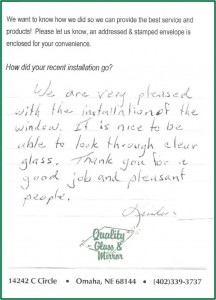 We want to know how we did so we can provide the best service and
products! Please let us know, an addressed & stamped envelope is
enclosed for your convenience.
How did your recent installation go?
We are very pleased
with the installation of the
window. It is nice to be
able to look through clear
glass. Thank you for a
good job and pleasant
people.
Quality
Glass &
Mirror
14242 C Circle • Omaha, NE 68144 • (402)339-3737